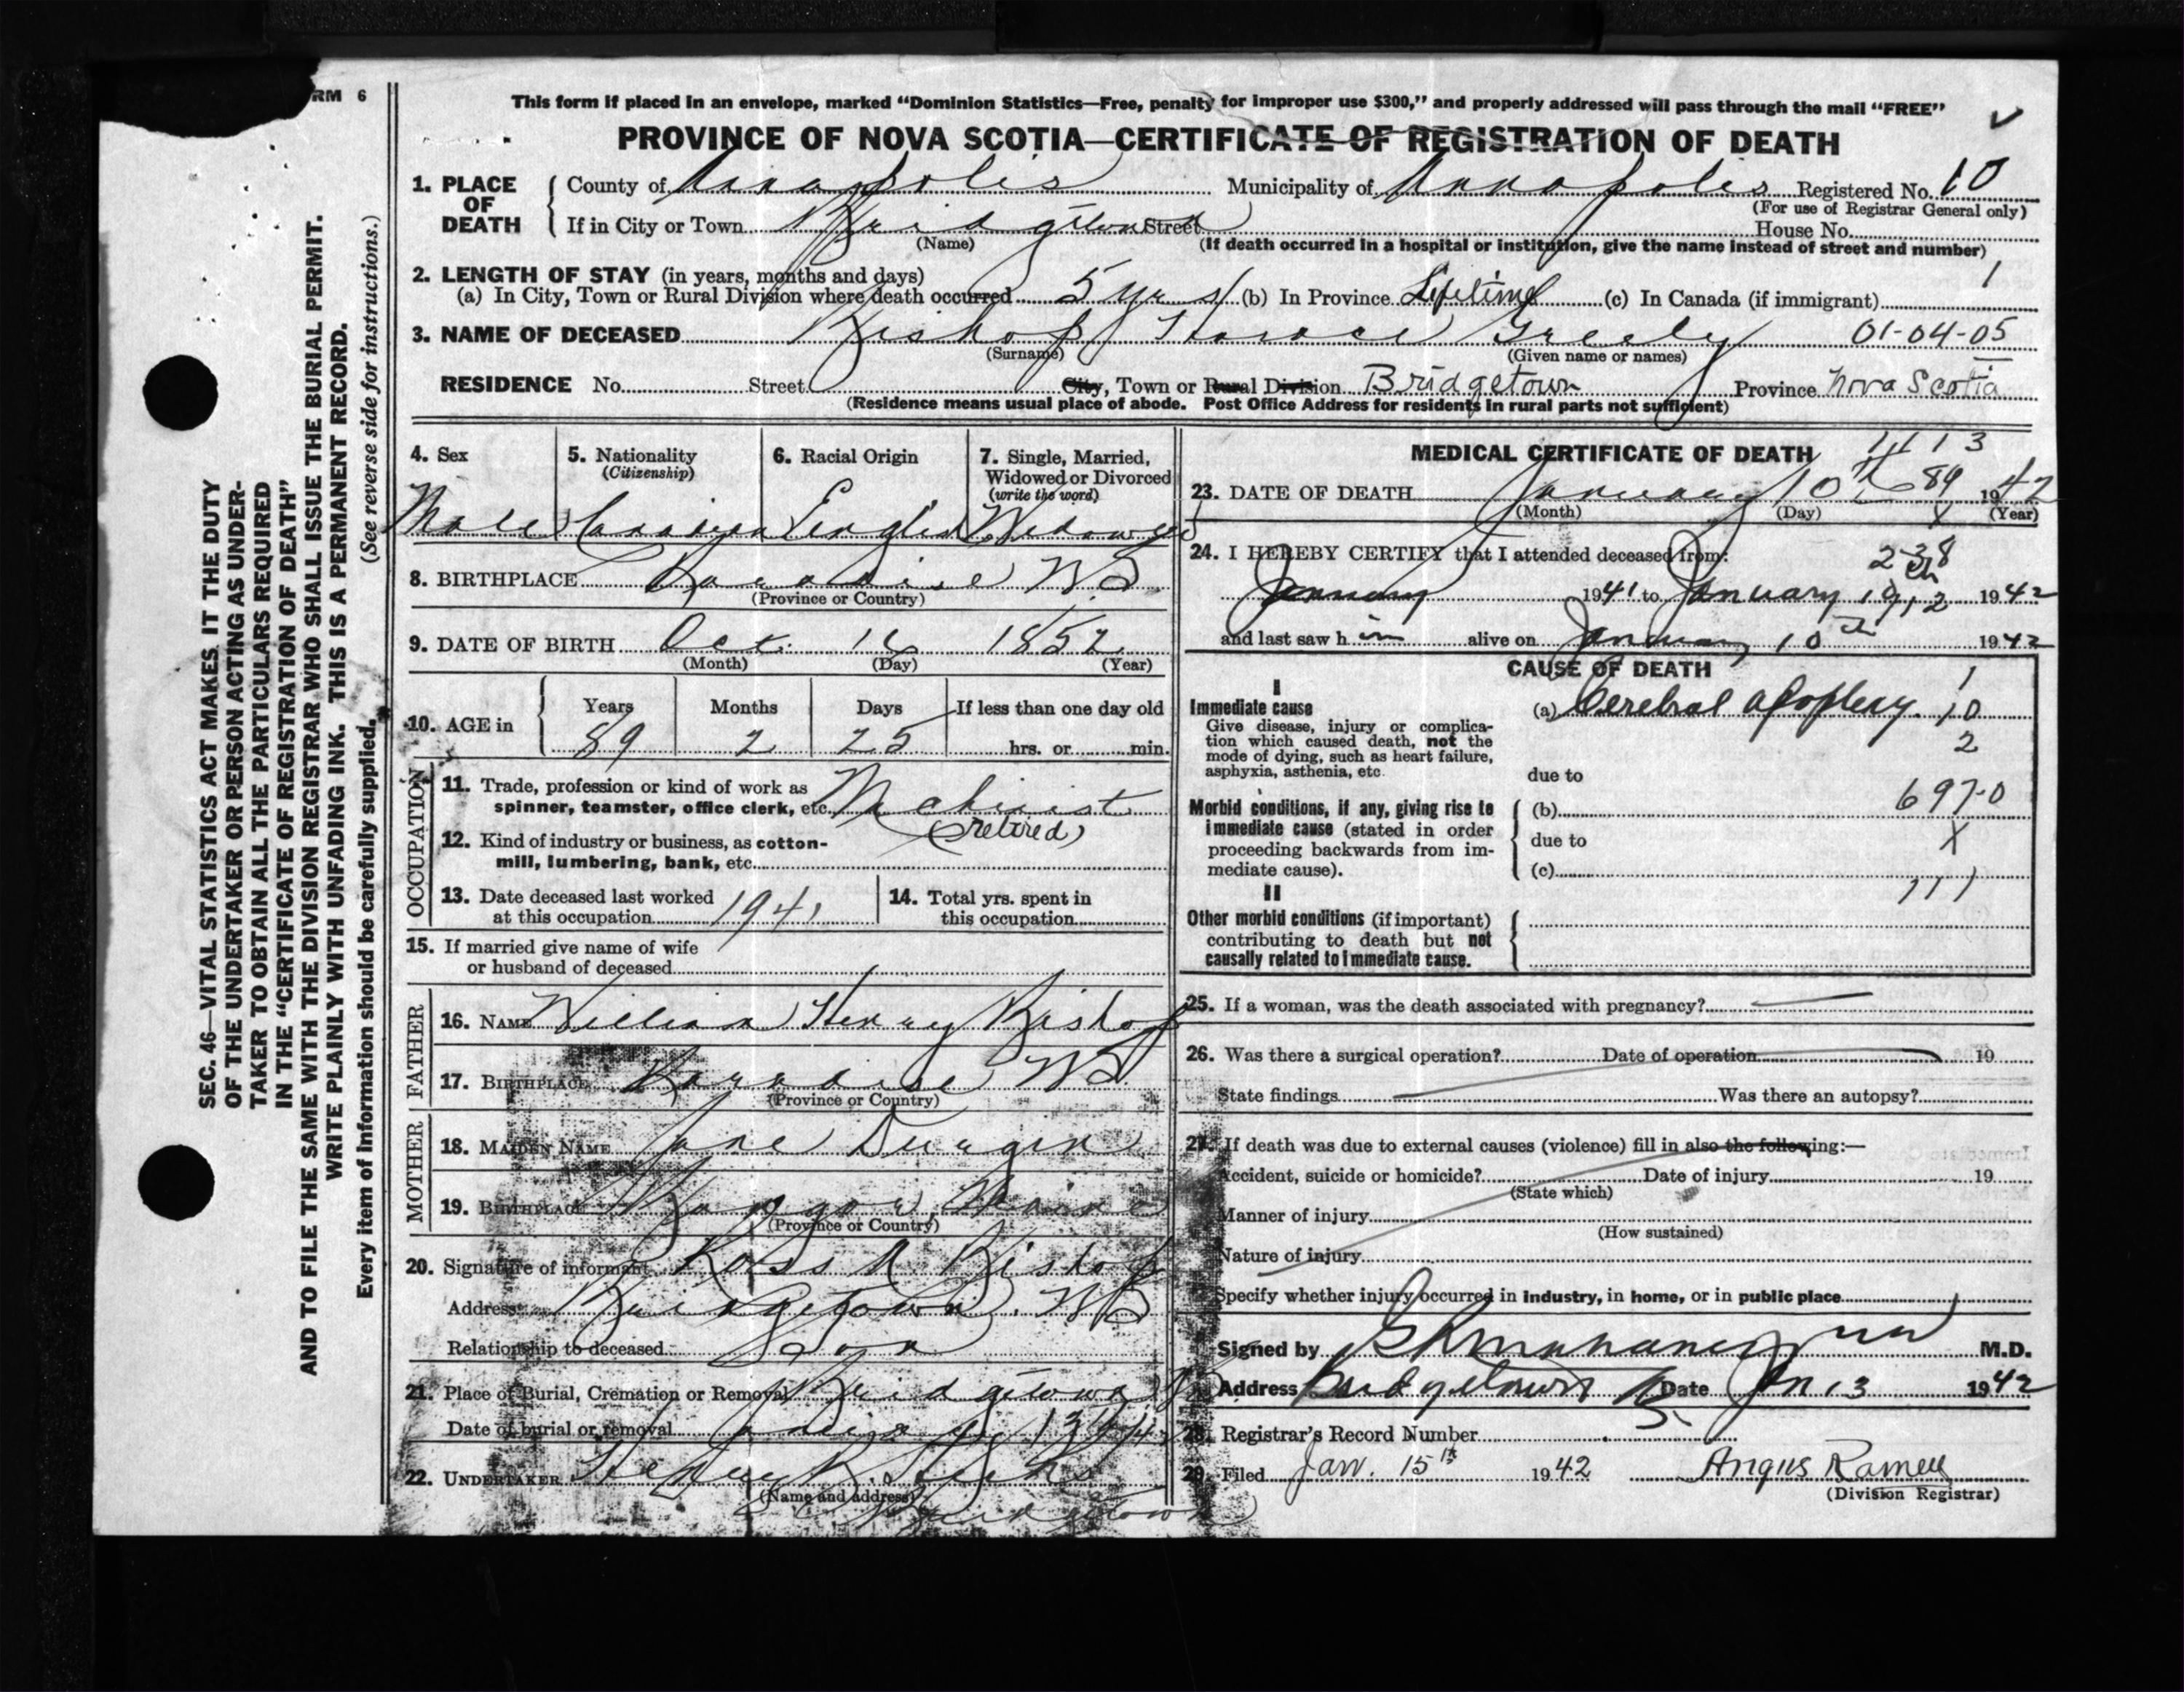 RM 6
This form if placed in an envelope, marked "Dominion Statistics—Free, penalty for improper use $300," and properly addressed will pass through the mail "FREE"
PROVINCE OF NOVA SCOTIA—CERTIFICATE OF REGISTRATION OF DEATH
1. PLACE OF DEATH County of Annapolis Municipality of Annapolis Registered No. 10
(For use of Registrar General only)
If in City or Town Bridgetown Street House No.
(Name) (If death occurred in a hospital or institution, give the name instead of street and number)
2. LENGTH OF STAY (in years, months and days) 1
(a) In City, Town or Rural Division where death occurred 5 yrs (b) In Province Lifetime (c) In Canada (if immigrant)
3. NAME OF DECEASED Bishop Horace Greely 01-04-05
(Surname) (Given name or names)
RESIDENCE No. Street City, Town or Rural Division Bridgetown Province Nova Scotia
(Residence means usual place of abode. Post Office Address for residents in rural parts not sufficient)
4. Sex 5. Nationality 6. Racial Origin 7. Single, Married,
(Citizenship) Widowed or Divorced
(write the word)
Male Canadian English Widowed
8. BIRTHPLACE Paradise NS
(Province or Country)
9. DATE OF BIRTH Oct. 16 1852
(Month) (Day) (Year)
10. AGE in Years Months Days If less than one day old
89 2 25 hrs. or min.
OCCUPATION
11. Trade, profession or kind of work as
spinner, teamster, office clerk, etc. Machinist
(retired)
12. Kind of industry or business, as cotton-
mill, lumbering, bank, etc.
13. Date deceased last worked 14. Total yrs. spent in
at this occupation 1941 this occupation
15. If married give name of wife
or husband of deceased
FATHER
16. NAME William Henry Bishop
17. BIRTHPLACE Paradise NS.
(Province or Country)
MOTHER
18. MAIDEN NAME Jane Durgin
19. BIRTHPLACE Bangor, Maine
(Province or Country)
20. Signature of informant Ross A. Bishop
Address Bridgetown, NS
Relationship to deceased Son
21. Place of Burial, Cremation or Removal Bridgetown NS
Date of burial or removal 13
22. UNDERTAKER
(Name and address)
Bridgetown
MEDICAL CERTIFICATE OF DEATH 1113
23. DATE OF DEATH January 10th 89 1942
(Month) (Day) X (Year)
24. I HEREBY CERTIFY that I attended deceased from:
238
January 1941 to January 1942
and last saw him alive on January 10th 1942
CAUSE OF DEATH
I
Immediate cause (a) Cerebral apoplexy. 1
10
2
Give disease, injury or complica-
tion which caused death, not the
mode of dying, such as heart failure,
asphyxia, asthenia, etc. due to
697-0
Morbid conditions, if any, giving rise to (b)
immediate cause (stated in order due to X
proceeding backwards from im-
mediate cause). (c)
111
II
Other morbid conditions (if important)
contributing to death but not
causally related to immediate cause.
25. If a woman, was the death associated with pregnancy?
26. Was there a surgical operation? Date of operation 19
State findings Was there an autopsy?
27. If death was due to external causes (violence) fill in also the following:—
Accident, suicide or homicide? Date of injury 19
(State which)
Manner of injury
(How sustained)
Nature of injury
Specify whether injury occurred in industry, in home, or in public place
Signed by M.D.
Address Bridgetown NS Date Jan 13 1942
28. Registrar's Record Number
29. Filed Jan. 15th 1942 Angus Ramey
(Division Registrar)
SEC. 46—VITAL STATISTICS ACT MAKES IT THE DUTY
OF THE UNDERTAKER OR PERSON ACTING AS UNDER-
TAKER TO OBTAIN ALL THE PARTICULARS REQUIRED
IN THE "CERTIFICATE OF REGISTRATION OF DEATH"
AND TO FILE THE SAME WITH THE DIVISION REGISTRAR WHO SHALL ISSUE THE BURIAL PERMIT.
WRITE PLAINLY WITH UNFADING INK. THIS IS A PERMANENT RECORD.
Every item of information should be carefully supplied. (See reverse side for instructions.)